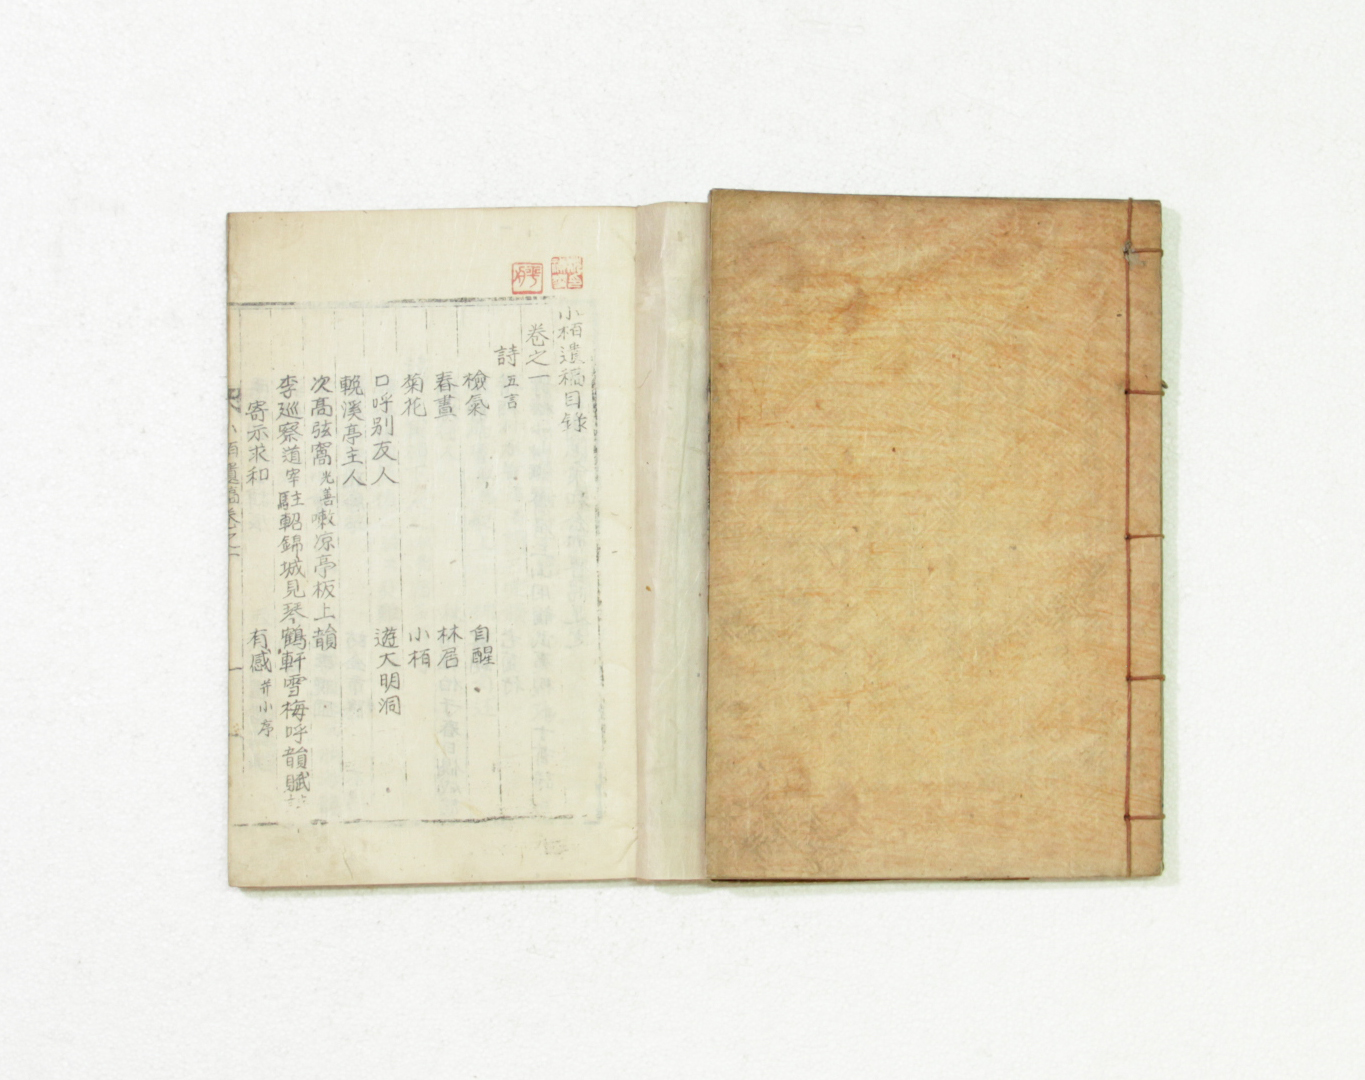 小栢遺稿目錄
卷之一
詩 五言
檢氣 自醒
春晝 林居
菊花 小栢
口呼别友人 遊大明洞
輓溪亭主人
次高弦窩光善嗽凉亭板上韻
李廵察道宰駐軺錦城見琴鶴軒雪梅呼韻賦
寄示求和 有感 并小序
小栢遺稿卷之一